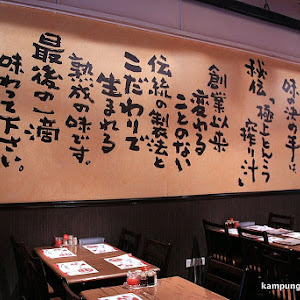 味の決め手に、
秘伝「極上とんこつ
搾り汁」
創業以来
変わる
ことのない
伝統の製法と
こだわりで
生まれる
熟成の味です。
最後の一滴
味わって下さい。
kampung